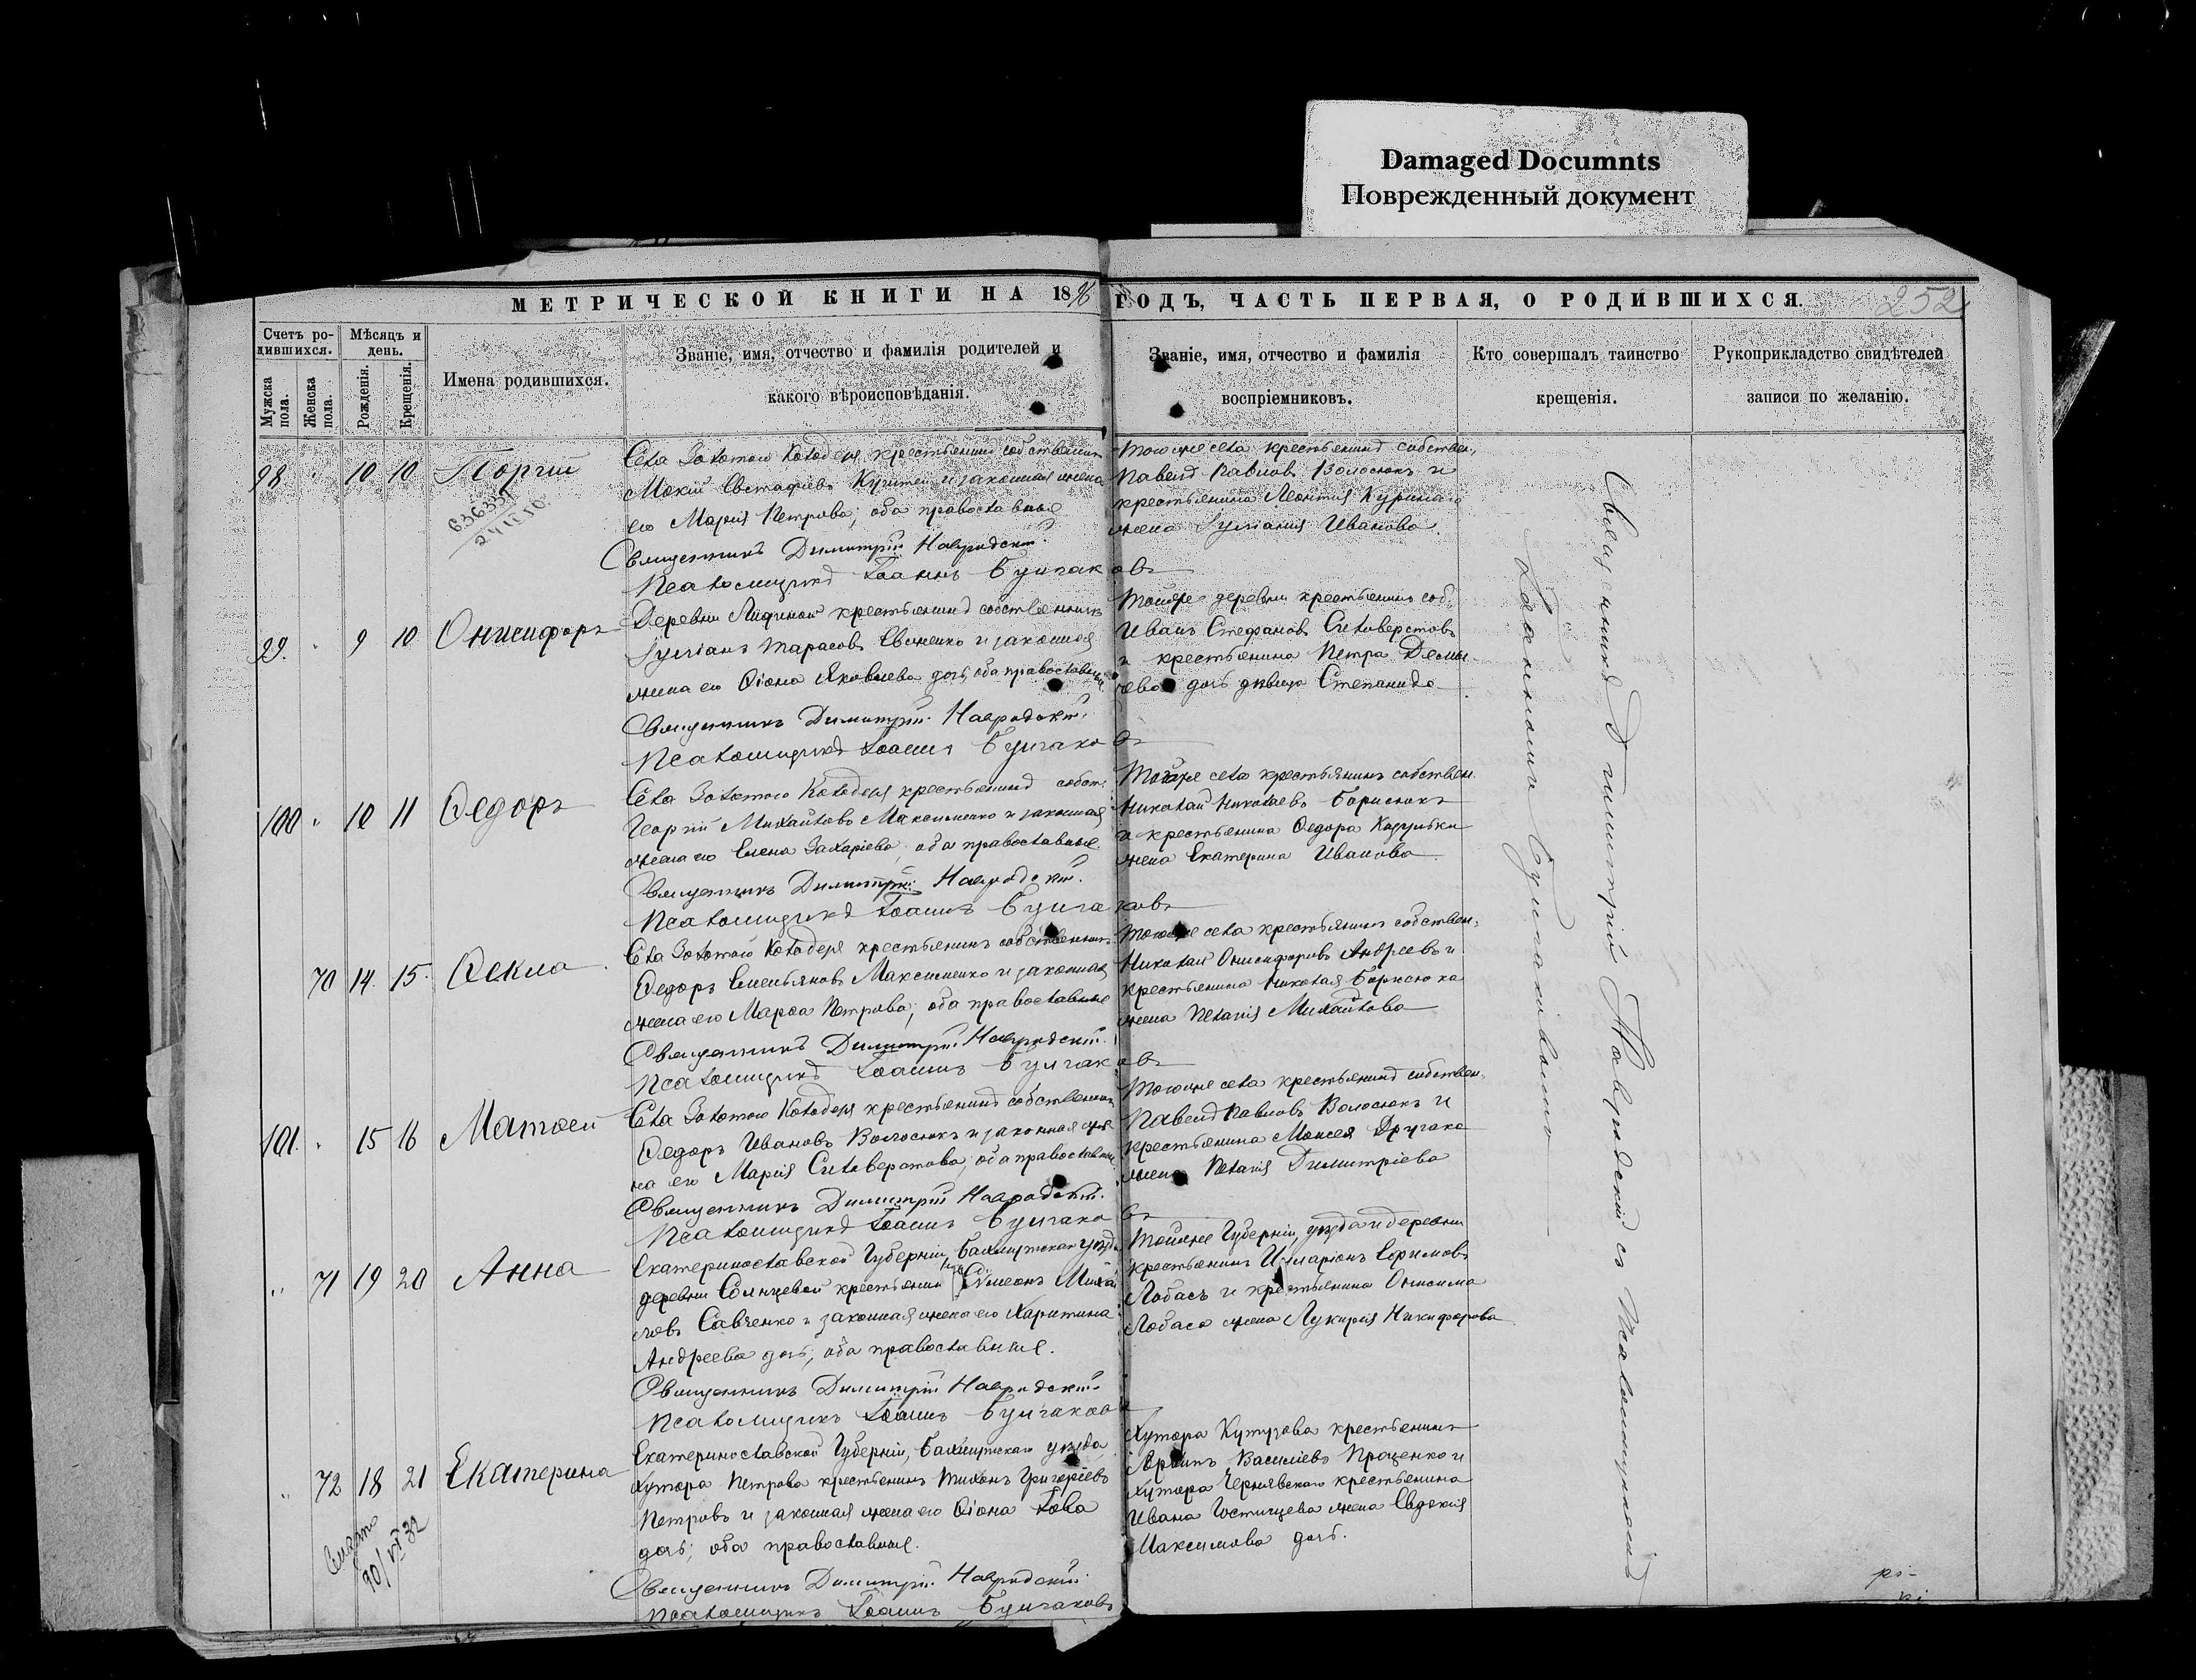 Damaged Documnts
Поврежденный документ
МЕТРИЧЕСКОЙ КНИГИ НА 1896 ГОДЪ, ЧАСТЬ ПЕРВАЯ, О РОДИВШИХСЯ.
252
Счетъ родившихся.
Мужска пола.
Женска пола.
Мѣсяцъ и день.
Рожденія.
Крещенія.
Имена родившихся.
Званіе, имя, отчество и фамилія родителей и
какого вѣроисповѣданія.
Званіе, имя, отчество и фамилія
воспріемниковъ.
Кто совершалъ таинство
крещенія.
Рукоприкладство свидѣтелей
записи по желанію.
98 " 10 10 Георгій
Села Золотого Колодезя крестьянинъ собственникъ
Мокій Евстафіевъ и законная жена
его Марія Петрова; оба православные
Священникъ Димитрій Навродскій.
Псаломщикъ Іоаннъ Булгаковъ
Тогоже села крестьянинъ собствен.
Павелъ Павловъ Волосюкъ и
крестьянина Леонтія
жена Іуліанія Иванова.
99. " 9 10 Онисифоръ
Деревни крестьянинъ собственникъ
Іуліанъ Тарасовъ Евсиенко и законная
жена его Ѳіона Яковлева дочь, оба православные
Священникъ Димитрій Навродскій.
Псаломщикъ Іоаннъ Булгаковъ
Тойже деревни крестьянинъ соб.
Иванъ Стефановъ Силоверстовъ
и крестьянина Петра
дочь дѣвица Степанида
100 " 10 11 Ѳедоръ
Села Золотого Колодезя крестьянинъ собст.
Георгій Михайловъ Максименко и законная
жена его Елена Захаріева, оба православные.
Священникъ Димитрій Навродскій.
Псаломщикъ Іоаннъ Булгаковъ
Тогоже села крестьянинъ собствен.
Николай Николаевъ Борисюкъ
и крестьянина Ѳедора
жена Екатерина Иванова.
70 14. 15. Ѳекла
Села Золотого Колодезя крестьянинъ собственникъ
Ѳедоръ Емельяновъ Максименко и законная
жена его Марѳа Петрова; оба православные
Священникъ Димитрій Навродскій.
Псаломщикъ Іоаннъ Булгаковъ
Тогоже села крестьянинъ собствен.
Николай Онисифоровъ Андреевъ и
крестьянина Николая Борисюка
жена Пелагія Михайлова
101. " 15 16 Матѳей
Села Золотого Колодезя крестьянинъ собственникъ
Ѳедоръ Ивановъ Волосюкъ и законная же
на его Марія Силоверстова; оба православные
Священникъ Димитрій Навродскій.
Псаломщикъ Іоаннъ Булгаковъ
Тогоже села крестьянинъ собствен.
Павелъ Павловъ Волосюкъ и
крестьянина Моисея
жена Пелагія Димитріева
" 71 19 20 Анна
Екатеринославской Губерніи, Бахмутскаго уѣзда
деревни Солнцевой крестьянинъ Симеонъ Михай
ловъ Савченко и законная жена его Харитина
Андреева дочь; оба православные.
Священникъ Димитрій Навродскій.
Псаломщикъ Іоаннъ Булгаковъ
Тойже Губерніи, уѣзда и деревни
крестьянинъ Иларіонъ Ефимовъ
Лобасъ и крестьянина Онисима
Лобаса жена Лукирія Никифорова
" 72 18 21 Екатерина
Екатеринославской Губерніи, Бахмутскаго уѣзда
Хутора Петрова крестьянинъ Тихонъ Григоріевъ
Петровъ и законная жена его Ѳіона Іова
дочь; оба православные.
Священникъ Димитрій Навродскій
Псаломщикъ Іоаннъ Булгаковъ
Хутора Кутузова крестьянинъ
Василіевъ Проценко и
Хутора Чернявского крестьянина
Ивана Гостищева жена Евдокія
Максимова дочь.
Священникъ Димитрій Навродскій съ Псаломщикомъ
Іоанномъ Булгаковымъ